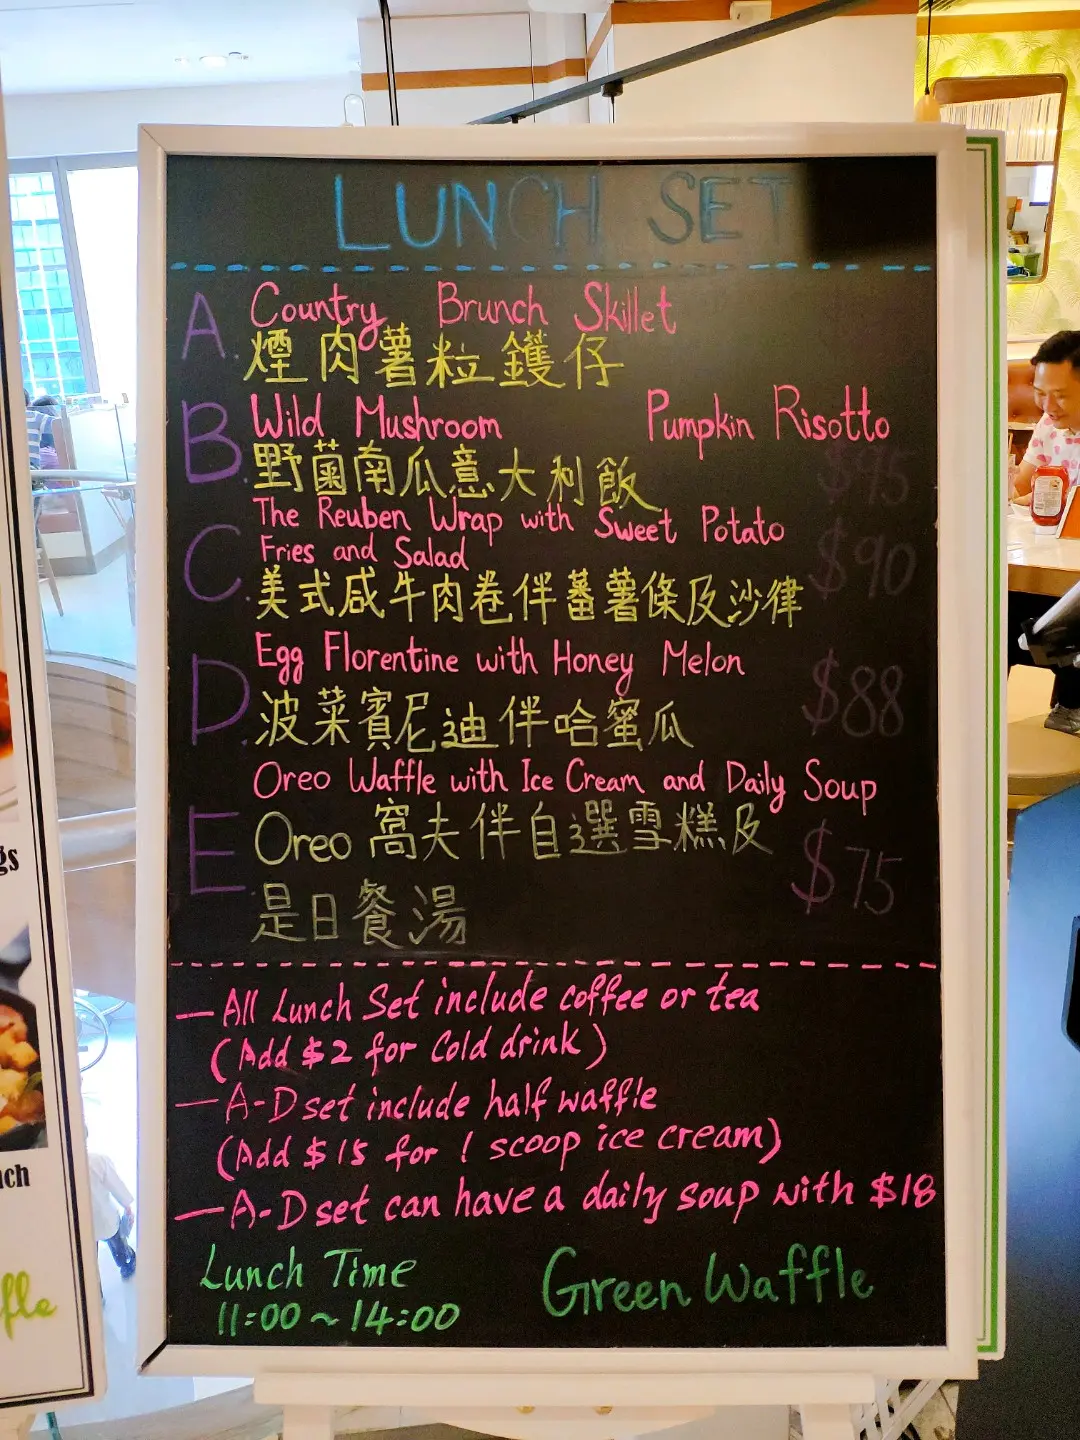 LUNCH SET
A. Country Brunch Skillet
煙肉薯粒鑊仔
B. Wild Mushroom Pumpkin Risotto
野菌南瓜意大利飯 $95
C. The Reuben Wrap with Sweet Potato
Fries and Salad $90
美式咸牛肉卷伴蕃薯條及沙律
D. Egg Florentine with Honey Melon
波菜賓尼迪伴哈蜜瓜 $88
Oreo Waffle with Ice Cream and Daily Soup
E. Oreo 窩夫伴自選雪糕及 $75
是日餐湯
—All Lunch Set include coffee or tea
(Add $2 for Cold drink)
—A-D set include half waffle
(Add $15 for 1 scoop ice cream)
—A-D set can have a daily soup with $18
Lunch Time
11:00~14:00
Green Waffle